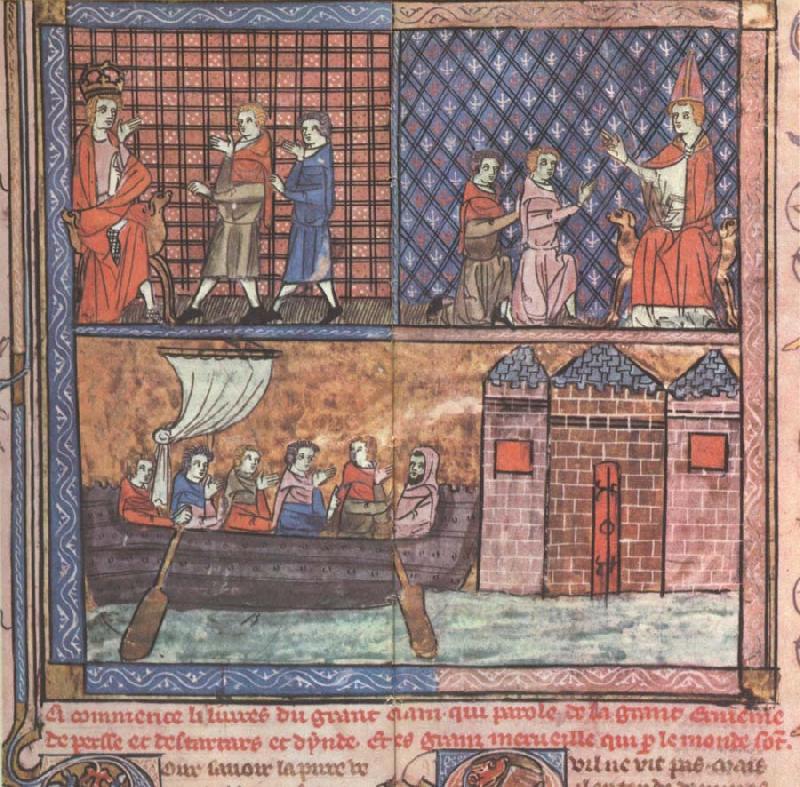 Ci commence li liures du graunt Caam · qui parole de la graunt Ermenie
de persse et des tartars et dynde · Et es granz merueille qui p le monde sõt.
Our sauoir la pure ve
vil ne vit pas · mais